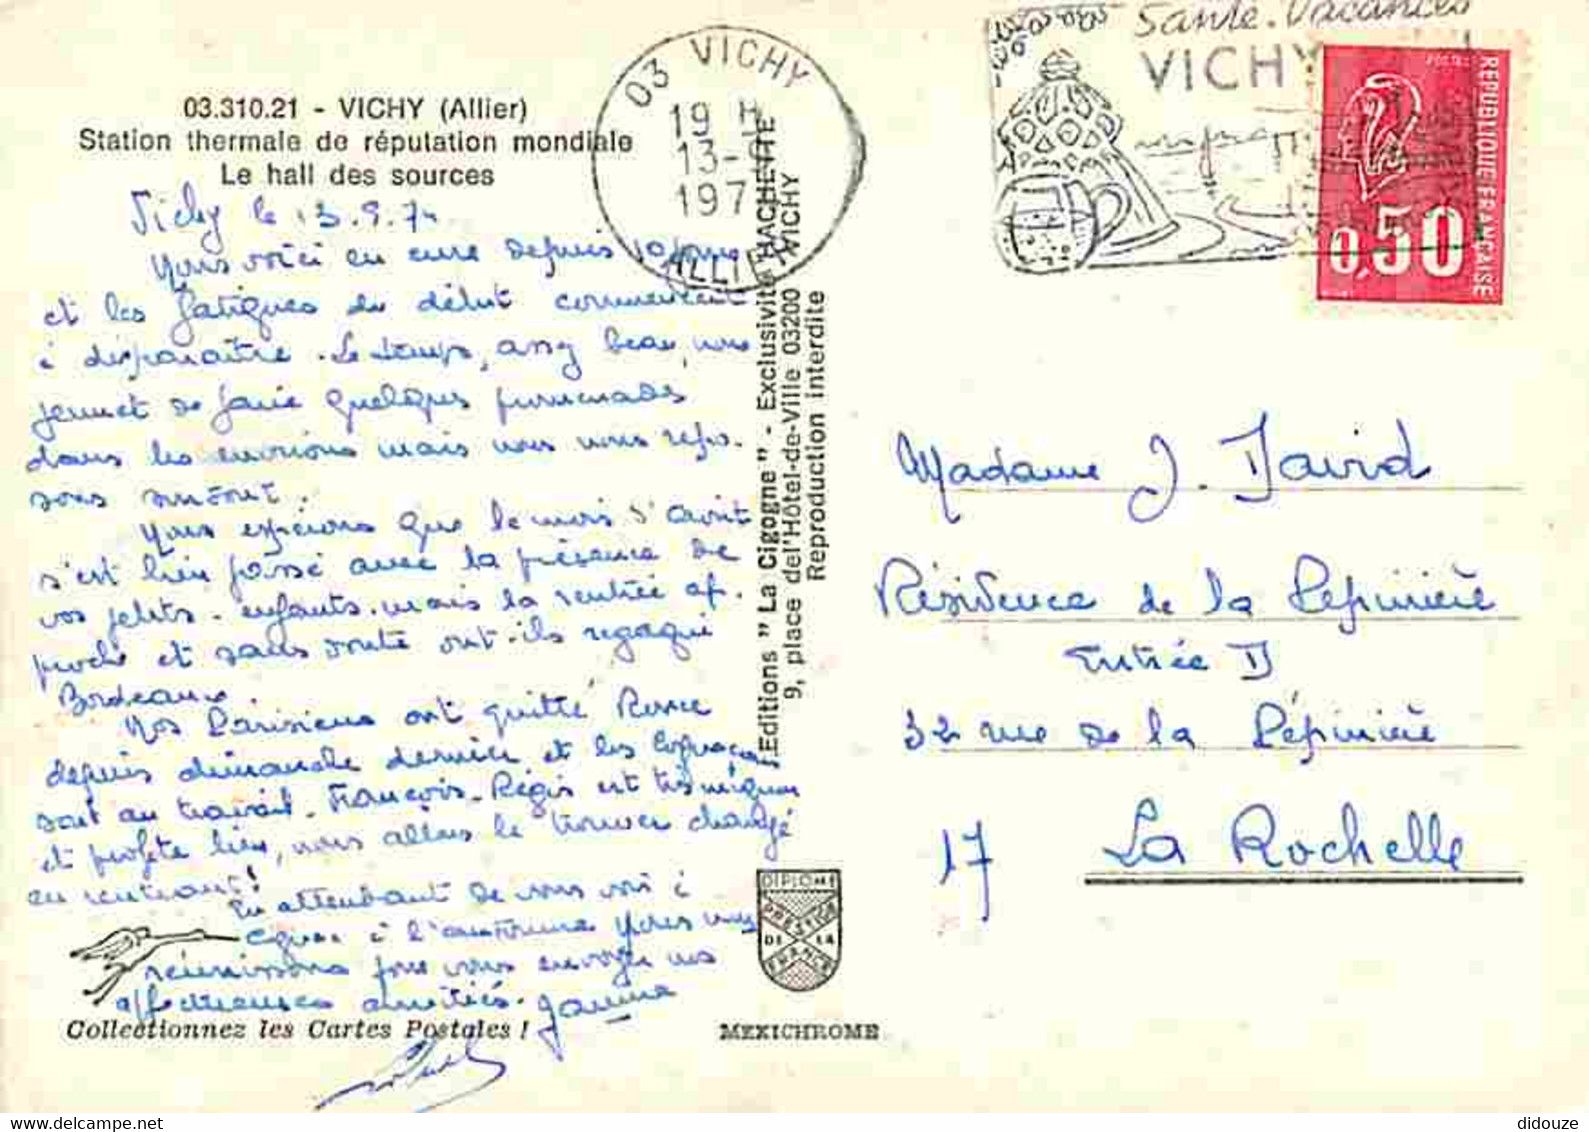 Santé.Vacances
VICHY
03 VICHY
19 H
13-9
197
ALLIER
REPUBLIQUE FRANÇAISE
POSTES
0,50
03.310.21 - VICHY (Allier)
Station thermale de réputation mondiale
Le hall des sources
Vichy le 13.9.74
Nous voici en cure depuis 10 jours
et les fatigues du début commencent
à disparaître. Le temps, assez beau, nous
permet de faire quelques promenades
dans les environs mais nous nous repo-
sons surtout.
Nous espérons que le mois d'août
s'est bien passé avec la présence de
vos petits-enfants. mais la rentrée ap-
proche et sans doute ont-ils regagné
Bordeaux.
Nos Parisiens ont quitté
depuis dimanche dernier et les
sont au travail. François-Régis est très mignon
et profite bien, nous allons le trouver changé
en rentrant!
En attendant de vous voir à
Cognac à l'automne nous nous
réunissons pour vous envoyer nos
affectueuses amitiés.
Editions "La Cigogne" - Exclusivité HACHETTE
9, place del'Hôtel-de-Ville 03200 VICHY
Reproduction interdite
DIPLOME
PRESTIGE
DE LA
FRANCE
Collectionnez les Cartes Postales !
MEXICHROME
Madame J. David
Résidence de la Pépinière
Entrée D
32 rue de la Pépinière
17 La Rochelle
delcampe.net
didouze